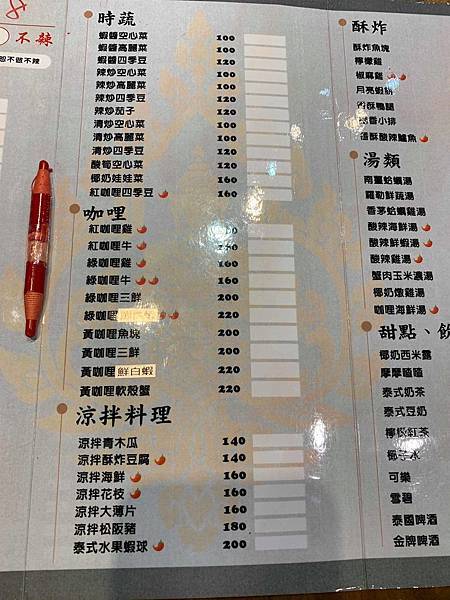 不辣
您不做不辣
時蔬
蝦醬空心菜 100
蝦醬高麗菜 100
蝦醬四季豆 120
辣炒空心菜 100
辣炒高麗菜 100
辣炒四季豆 120
辣炒茄子 120
清炒空心菜 100
清炒高麗菜 100
清炒四季豆 120
酸筍空心菜 120
椰奶娃娃菜 160
紅咖哩四季豆 160
咖哩
紅咖哩雞
紅咖哩牛 160
綠咖哩雞 160
綠咖哩牛 160
綠咖哩三鮮 220
綠咖哩 220
黃咖哩魚塊 220
黃咖哩三鮮 220
黃咖哩鮮白蝦 220
黃咖哩軟殼蟹 220
涼拌料理
涼拌青木瓜 140
涼拌酥炸豆腐 140
涼拌海鮮 160
涼拌花枝 160
涼拌大薄片 160
涼拌松阪豬 180
泰式水果蝦球 200
酥炸
酥炸魚塊
檸檬雞
椒麻雞
月亮蝦餅
香酥鴨腿
香小排
酥酸辣鱸魚
湯類
南薑蛤蠣湯
羅勒鮮蔬湯
香茅蛤蠣雞湯
酸辣海鮮湯
酸辣鮮蝦湯
酸辣雞湯
蟹肉玉米濃湯
椰奶燉雞湯
咖哩海鮮湯
甜點、飲
椰奶西米露
摩摩喳喳
泰式奶茶
泰式豆奶
檸檬紅茶
椰子水
可樂
雪碧
泰國啤酒
金牌啤酒